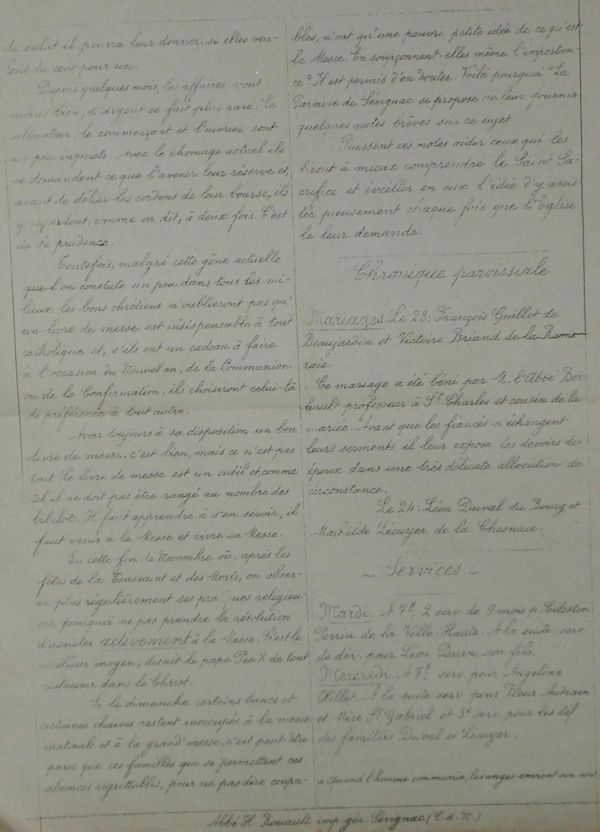 de salut il pourra leur donner, si elles veu-
lent du cent pour un.
Depuis quelques mois, les affaires vont
moins bien, l'argent se fait plus rare. Le
cultivateur, le commerçant et l'ouvrier sont
un peu inquiets. Avec le chomage actuel ils
se demandent ce que l'avenir leur réserve et,
avant de délier les cordons de leur bourse, ils
y regardent, comme on dit, à deux fois. C'est
de la prudence.
Toutefois, malgré cette gêne actuelle
que l'on constate un peu dans tous les mi-
lieux les bons chrétiens n'oublieront pas qu'
un livre de messe est indispensable à tout
catholique et, s'ils ont un cadeau à faire
à l'occasion du Nouvel an, de la Communion
ou de la Confirmation, ils choisiront celui-là
de préférence à tout autre.
Avoir toujours à sa disposition un bon
livre de messe c'est bien, mais ce n'est pas
tout. Le livre de messe est un outil et, comme
tel, il ne doit pas être rangé au nombre des
bibelots. Il faut apprendre à s'en servir, il
faut venir à la Messe et vivre sa Messe.
En cette fin de Novembre où, après les
fêtes de la Toussaint et des Morts, on obser-
ve plus régulièrement ses pratiques religieu-
ses, pourquoi ne pas prendre la résolution
d'assister activement à la Messe. C'est le
meilleur moyen, disait le pape Pie X de tout
restaurer dans le Christ.
Si le dimanche certains bancs et
certaines chaises restent inoccupés à la messe
matinale et à la grand'messe, c'est peut-être
parce que ces familles qui se permettent ces
absences regrettables, pour ne pas dire coupa-
bles, n'ont qu'une pauvre petite idée de ce qu'est
la Messe. En soupçonnent-elles même l'importan-
ce? Il est permis d'en douter. Voilà pourquoi "La
Paroisse de Sévignac se propose de leur fournir
quelques notes brèves sur ce sujet
Puissent ces notes aider ceux qui les
liront à mieux comprendre le Saint Sa-
crifice et éveiller en eux l'idée d'y assis-
ter pieusement chaque fois que l'Eglise
le leur demande.
Chronique paroissiale
Mariages. Le 23: François Guillot de
Beaujardin et Victoire Briand de la Rame-
raie.
Ce mariage a été béni par M. l'Abbé
professeur à St Charles et cousin de la
mariée. Avant que les fiancés n'échangent
leurs serments il leur expose les devoirs des
époux dans une très délicate allocution de
circonstance.
Le 24: Léon Duval du Bourg et
Mathilde Lécuyer de la Chesnaie.
- Services -
Mardi. A 7h, 2 serv. de 9 mois p. Célestin
Perrin de la Ville Haute. A la suite, serv.
de dév. pour Léon Perrin, son fils.
Mercredi. A 7h serv pour Angelina
Rillet. A la suite serv. pour Fleur Audrain
et Mère St Gabriel et 3e serv. pour les déf.
des familles Duval et Lécuyer.
« Quand l'homme communie, les anges envient son sort
Abbé H. Rouault imp. gér. Sévignac (C. d. N.)